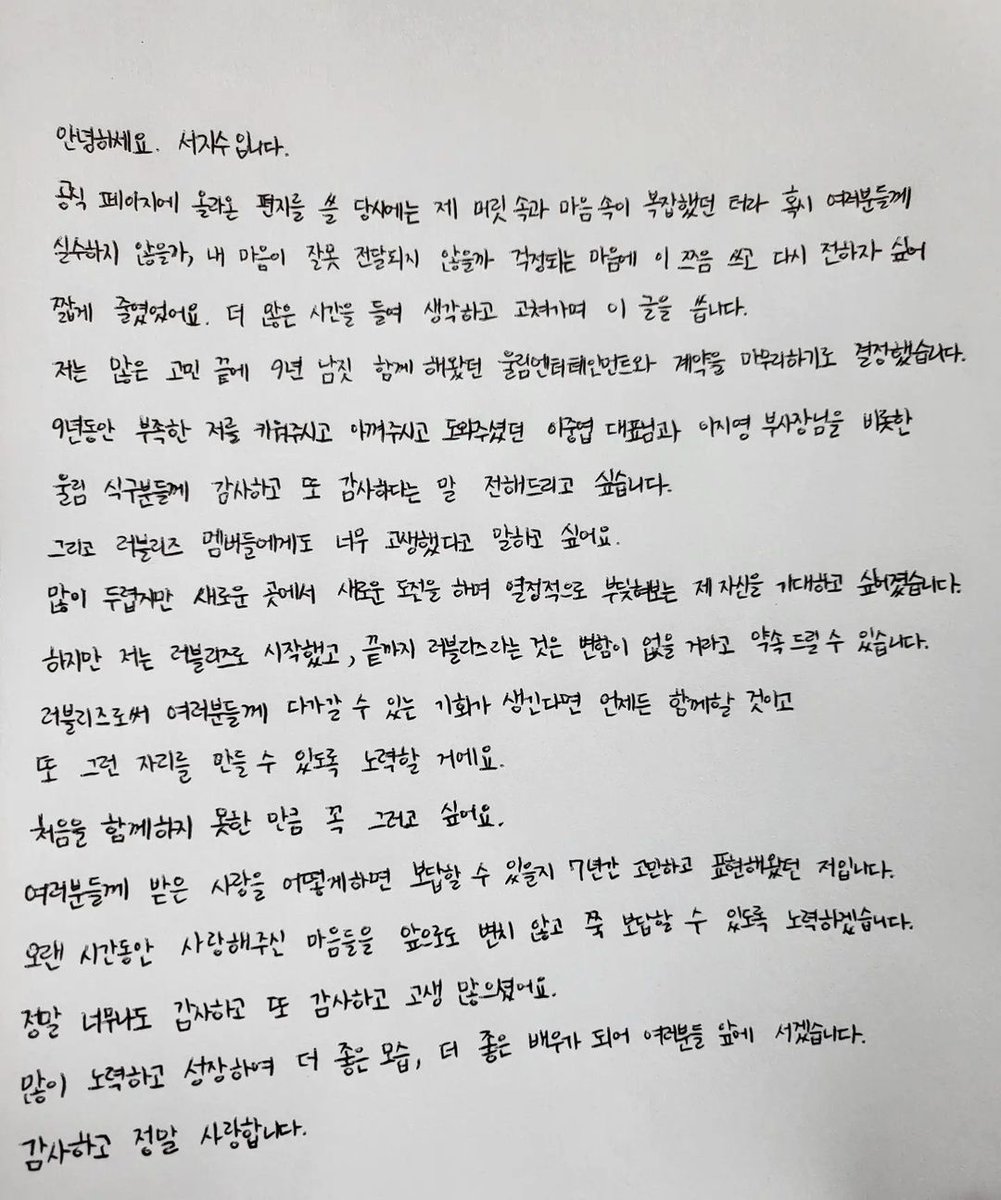 안녕하세요. 서지수입니다.
공식 페이지에 올라온 편지를 쓸 당시에는 제 머릿속과 마음속이 복잡했던 터라 혹시 여러분들께
실수하지 않을까, 내 마음이 잘못 전달되지 않을까 걱정되는 마음에 이 쯔음 쓰고 다시 전하자 싶어
짧게 줄였었어요. 더 많은 시간을 들여 생각하고 고쳐가며 이 글을 씁니다.
저는 많은 고민 끝에 9년 남짓 함께 해왔던 울림엔터테인먼트와 계약을 마무리하기로 결정했습니다.
9년동안 부족한 저를 키워주시고 아껴주시고 도와주셨던 이중엽 대표님과 이지영 부사장님을 비롯한
울림 식구분들께 감사하고 또 감사하다는 말 전해드리고 싶습니다.
그리고 러블리즈 멤버들에게도 너무 고생했다고 말하고 싶어요.
많이 두렵지만 새로운 곳에서 새로운 도전을 하며 열정적으로 부딪혀보는 제 자신을 기대하고 싶어졌습니다.
하지만 저는 러블리즈로 시작했고, 끝까지 러블리즈라는 것은 변함이 없을 거라고 약속 드릴 수 있습니다.
러블리즈로써 여러분들께 다가갈 수 있는 기회가 생긴다면 언제든 함께할 것이고
또 그런 자리를 만들 수 있도록 노력할 거에요.
처음을 함께하지 못한 만큼 꼭 그러고 싶어요.
여러분들께 받은 사랑을 어떻게하면 보답할 수 있을지 7년간 고민하고 표현해왔던 저입니다.
오랜 시간동안 사랑해주신 마음들을 앞으로도 변치 않고 쭉 보답할 수 있도록 노력하겠습니다.
정말 너무나도 감사하고 또 감사하고 고생 많으셨어요.
많이 노력하고 성장하여 더 좋은 모습, 더 좋은 배우가 되어 여러분들 앞에 서겠습니다.
감사하고 정말 사랑합니다.